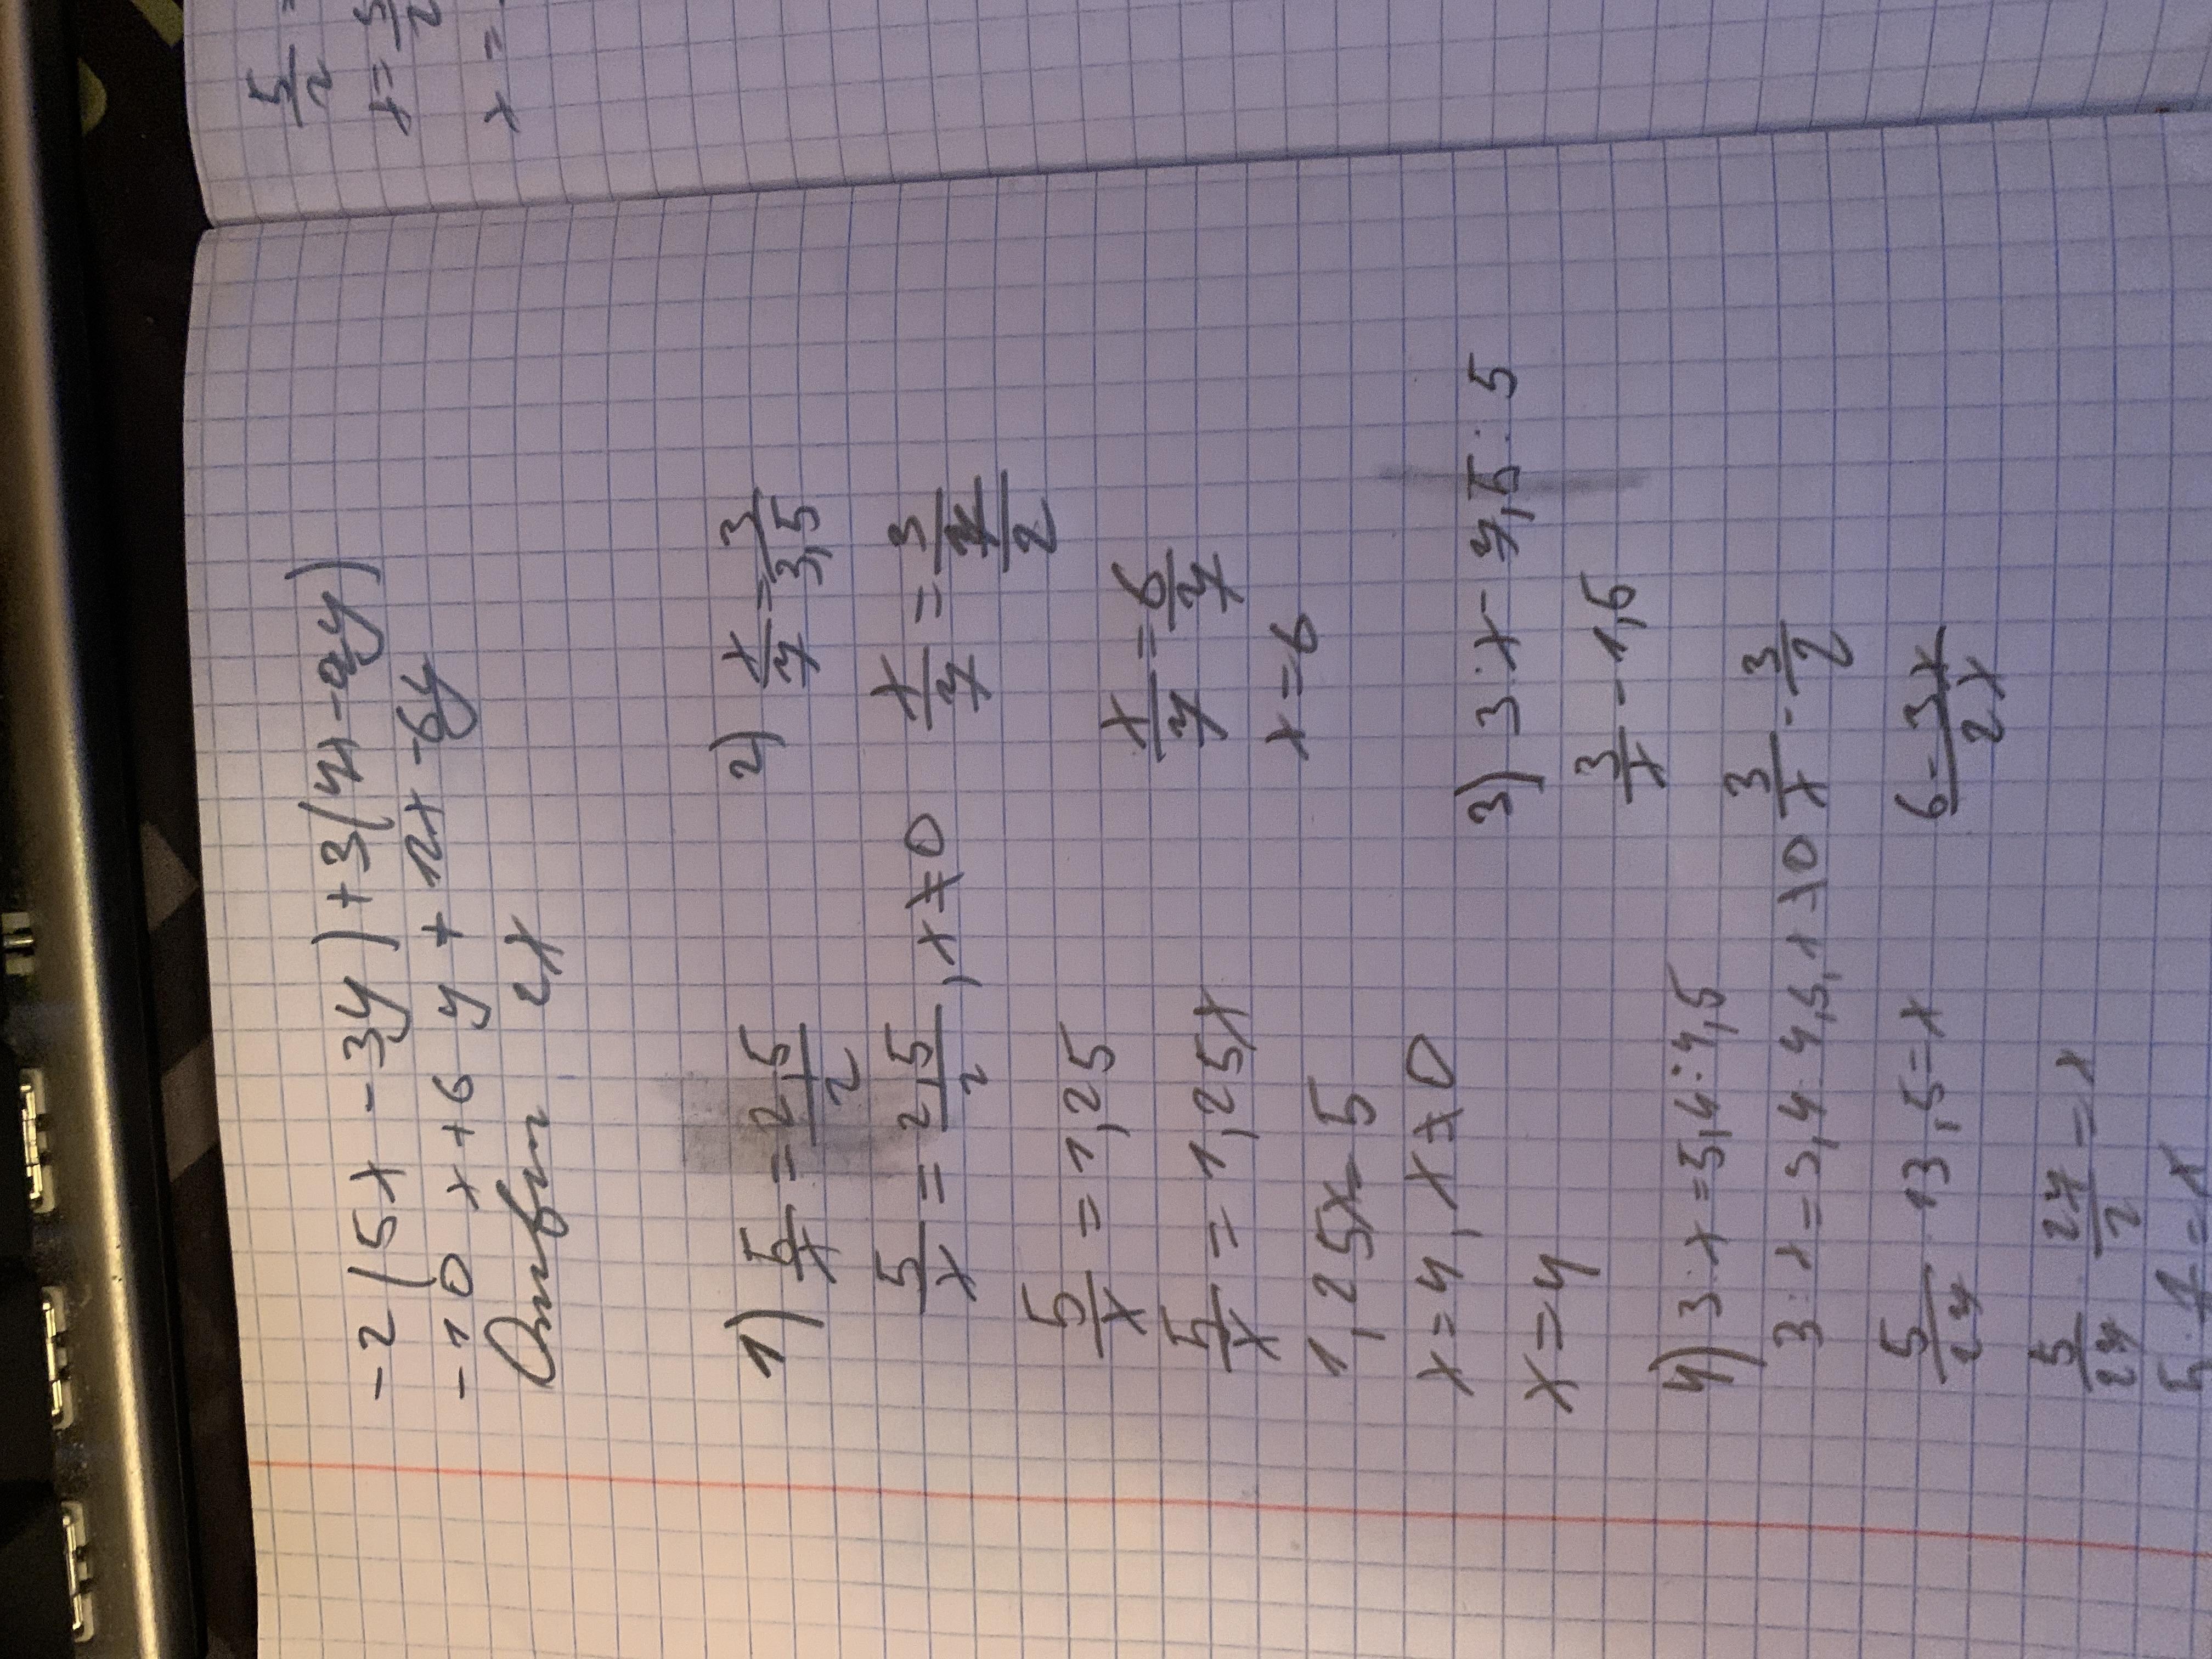 -2(5x-3y)+3(4x-2y)
-10x+6y+12x-6y
Ответ 2x
1) 5/x = 2,5/2
5/x = 2,5/2, x≠0
5/x = 1,25
5/x = 1,25x
1,25x=5
x=4, x≠0
x=4
2) x/7 = 3/3,5
x/7 = 3/(7/2)
x/7 = 6/7
x=6
3) 3:x-7,5:5
3/x-1,5
3/x-3/2
6-3x/2x
4) 3:x=5,4:4,5
3:x=5,4:4,5, x≠0
5/27·13,5=x
5/27·27/2=x
5/2
x=
x=